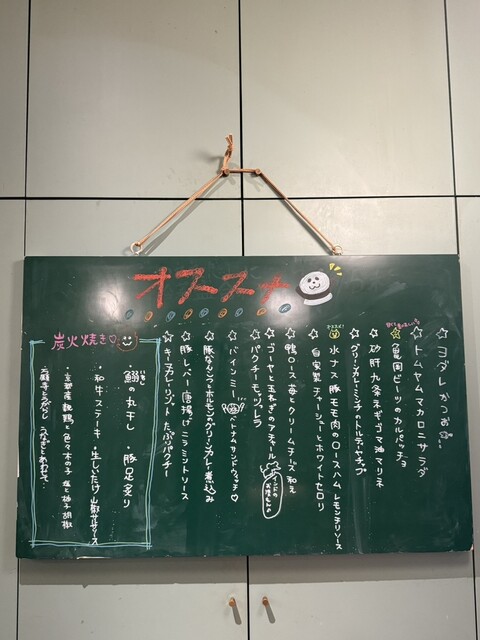 オススメ
☆ ヨダレかつお
☆ トムヤムマカロニサラダ
☆ 亀岡ビーツのカルパッチョ
☆ 砂肝 九条ネギゴマ油マリネ
☆ グリーンカレーミンチのトルティーヤチップ
オススメ!
水ナス 豚モモ肉のロースハム レモンチリソース
☆ 自家製チャーシューとホワイトセロリ
☆ 鴨ロース 苺とクリームチーズ和え
☆ ゴーヤと玉ねぎのアチャール
インドのお漬もの
☆ パクチーモッツァレラ
☆ バインミー ベトナムサンドウィッチ♡
☆ 豚なんこつとホルモングリーンカレー煮込み
☆ 豚レバー唐揚げニラミントソース
☆ キーマカレーリゾット たっぷりパクチー
炭火焼き♡
・鰯の丸干し ・豚足炙り
・和牛ステーキ・生しいたけ 山椒サルサソース
・京都産 鶏と色々木の子 塩と柚子胡椒
・万願寺とうがらし うなぎとあわせて・・